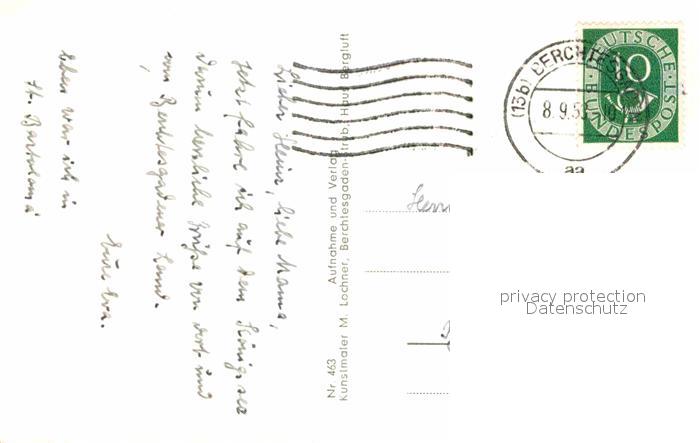 Lieber Heinz, liebe Mama,
Jetzt fahre ich auf dem Königssee
Darum herzliche Grüße von dort und
vom Berchtesgadener Land.
Eure Eva.
Eben war ich in
St. Bartolomä
Nr. 463 Aufnahme und Verlag
Kunstmaler M. Lochner, Berchtesgaden-Strub, Haus Bergluft
(13b) BERCHTESG
8.9.53
aa
DEUTSCHE
BUNDESPOST
10
Herrn
privacy protection
Datenschutz